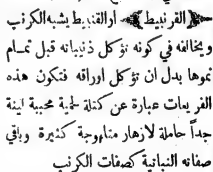 ﴿القرنبيط﴾ أو القنبيط يشبه الكرنب
ويخالفه في كونه تؤكل ذنيباته قبل تمام
نموها بدل ان تؤكل اوراقه فتكون هذه
الفريعات عبارة عن كتلة لحمية محببة لينة
جداً حاملة لازهار متلهوجة كثيرة وباقي
صفاته النباتية كصفات الكرنب